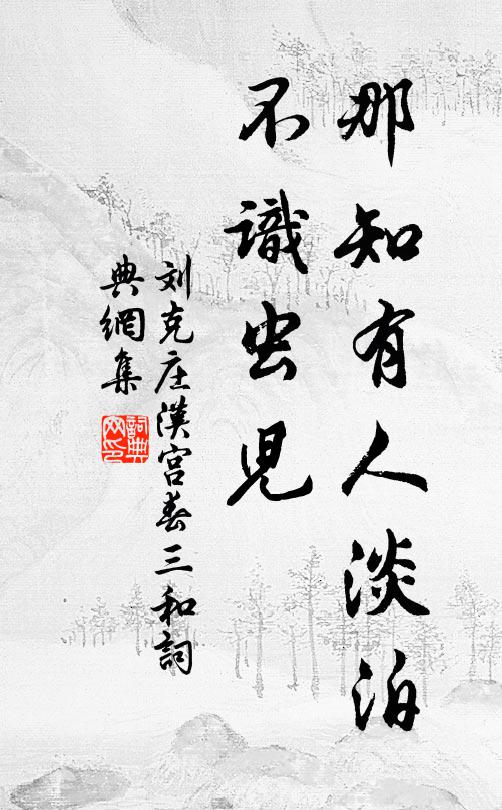 那知有人淡泊
不識虫児
刘克庄漢宫春三和詞
典網集
詞典网印